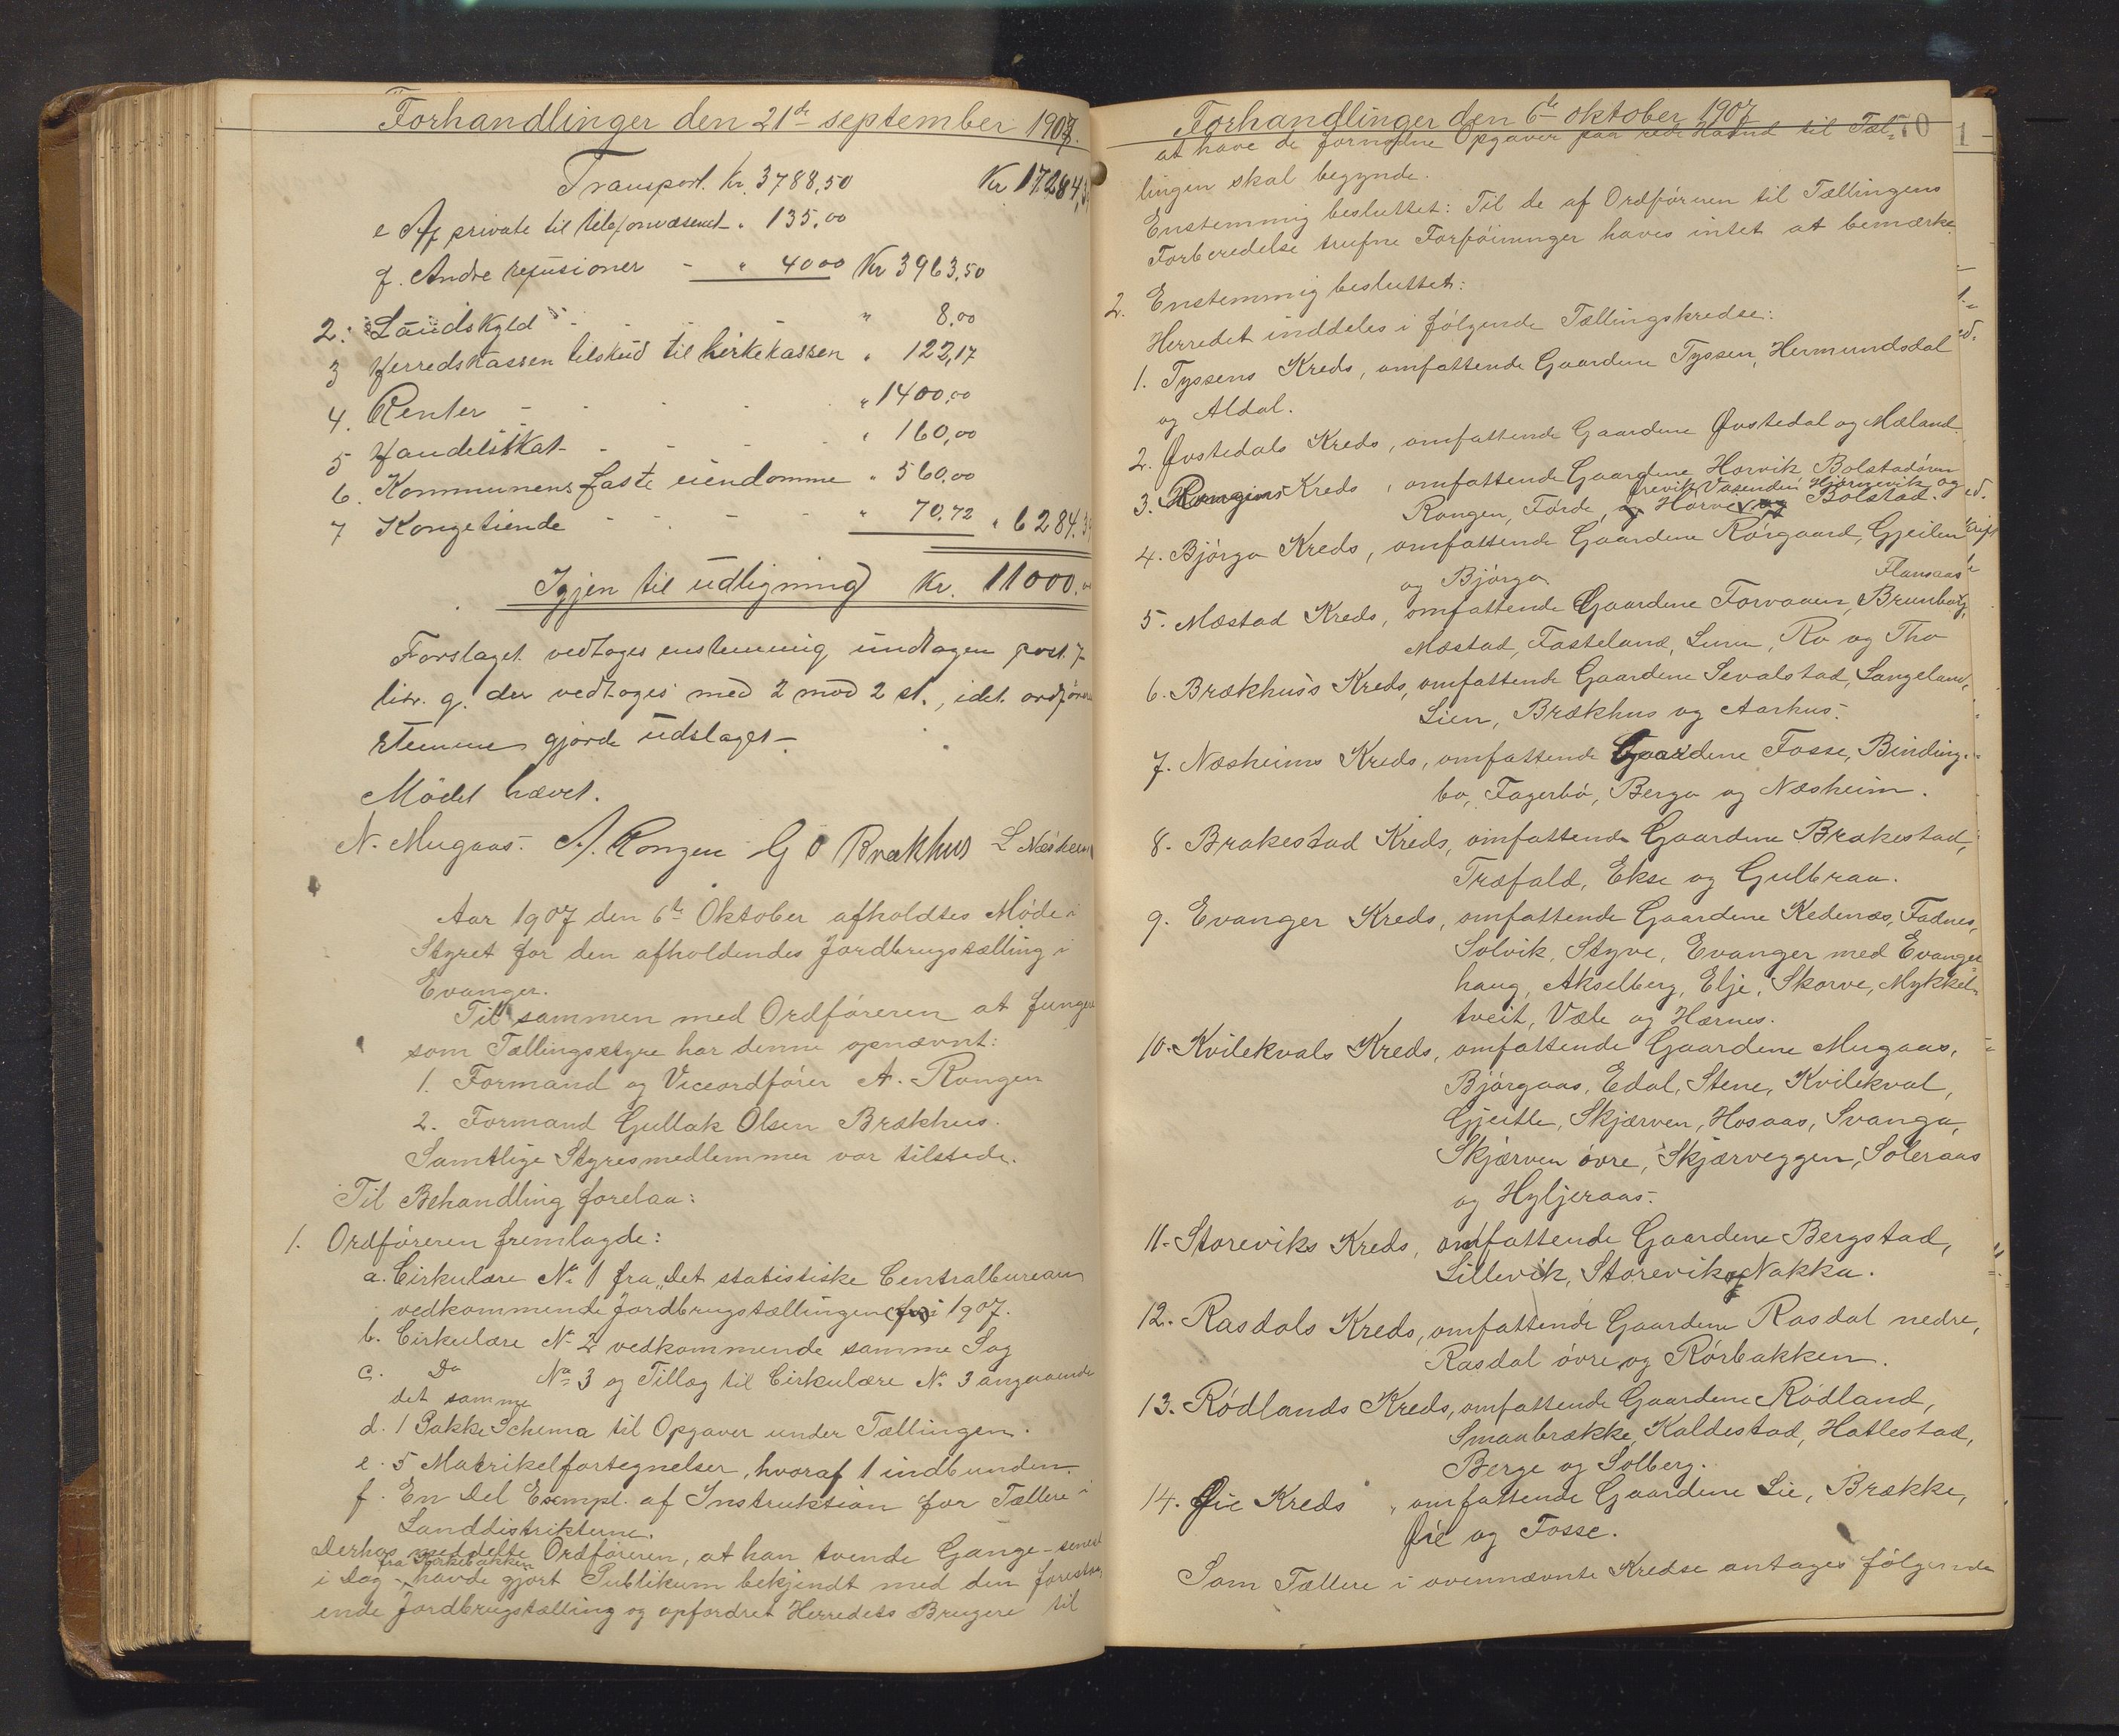 Forhandlinger den 21de september 1907.
Transport. Kr. 3788,50 Kr 17284,3
e Af private til telefonvæsenet „ 135,00
f. Andre refusioner - „ 40 00 Kr 3963,50
2. Landskyld - - - - „ 8,00
3 Herredskassen tilskud til kirkekassen „ 122,17
4. Renter - - - - „ 1400,00
5 Handelsskat - - - - „ 160,00
6. Kommunens faste eiendomme „ 560,00
7 Kongetiende - - - - „ 70,72 „ 6284.3
Igjen til udligning Kr. 11000.
Forslaget vedtoges enstemmig undtagen post 7
litr. g. der vedtoges med 2 mod 2 st., idet ordføreren
stemme gjorde udslaget.
Mødet hævet.
N. Mugaas. A. Rongen G O Brækhus L Næsheim
Aar 1907 den 6te Oktober afholdtes Møde i
Styret for den afholdendes Jordbrugstælling i
Evanger.
Til sammen med Ordføreren at fungere
som Tællingsstyre har denne opnævnt:
1. Formand og Viceordfører A. Rongen
2. Formand Gullak Olsen Brækhus.
Samtlige Styresmedlemmer var tilstede.
Til Behandling forelaa:
1. Ordføreren fremlagde:
a. Cirkulære No 1 fra „Det statistiske Centralbureau
vedkommende Jordbrugstællingen (for) i 1907.
b. Cirkulære No 2 vedkommende samme Sag
c. Do No 3 og Tillæg til Cirkulære No 3 angaaende
det samme
d. 1 Pakke Schema til Opgaver under Tællingen.
e. 5 Matrikelfortegnelser, hvoraf 1 indbunden.
f. En Del Exempl. af Instruktion for Tællere i
Landdistrikterne.
Derhos meddelte Ordføreren, at han tvende Gange - senest
fra Kirkebakken
i Dag - havde gjort Publikum bekjendt med den forestaa-
ende Jordbrugstælling og opfordret Herredets Brugere til
Forhandlinger den 6te oktober 1907
70
1
at have de fornødne Opgaver paa rede Haand til Tæl-
lingen skal begynde.
Enstemmig besluttet: Til de af Ordføreren til Tællingens
Forberedelse trufne Forføininger haves intet at bemærke.
2. Enstemmig besluttet:
Herredet inddeles i følgende Tællingskredse:
1. Tyssens Kreds, omfattende Gaardene Tyssen, Hermundsdal
og Aldal.
2. Øvstedals Kreds, omfattende Gaardene Øvstedal og Mæland.
3. Kreds, omfattende Gaardene Horvik, Bolstadøren
Vasenden, Hjørnevik og
Rongen, Førde, og Horve og Bolstad.
4. Bjørgo Kreds, omfattende Gaardene Rørgaard, Gjeilen
og Bjørgo.
Flansaas
5. Mæstad Kreds, omfattende Gaardene Forvaaen, Brunborg,
Mæstad, Fasteland, Lunn, Ro og Tho
6. Brækhus's Kreds, omfattende Gaardene Sevalstad, Langeland,
Lien, Brækhus og Aarhus.
7. Næsheims Kreds, omfattende Gaardene Fosse, Binding-
bo, Fagerbø, Bergo og Næsheim.
8. Brakestad Kreds, omfattende Gaardene Brakestad,
Træfald, Ekse og Gulbraa.
9. Evanger Kreds, omfattende Gaardene Kedenæs, Fadnes,
Solvik, Styve, Evanger med Evanger
haug, Akselberg, Elje, Skorve, Mykkel-
tveit, Væle og Hernes.
10. Kvilekvals Kreds, omfattende Gaardene Mugaas,
Bjørgaas, Edal, Stene, Kvilekval,
Gjeitle, Skjærven, Hosaas, Svanga,
Skjærven øvre, Skjærveggen, Soleraas
og Hyljeraas.
11. Storeviks Kreds, omfattende Gaardene Bergstad,
Lillevik, Storevik og Nakka.
12. Rasdals Kreds, omfattende Gaardene Rasdal nedre,
Rasdal øvre og Rørbakken.
13. Rødlands Kreds, omfattende Gaardene Rødland,
Smaabrække, Kaldestad, Hatlestad,
Berge og Solberg.
14. Øie Kreds, omfattende Gaardene Lie, Brække,
Øie og Fosse.
Som Tællere i ovennævnte Kredse antages følgende